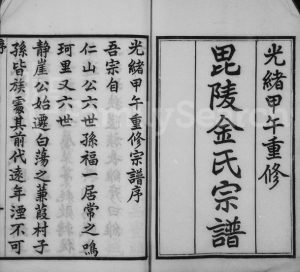 光緒甲午重修
毘陵金氏宗譜
光緒甲午重修宗譜序
吾宗自
仁山公六世孫福一居常之鳴
珂里又六世
静崖公始遷白蕩之蒹葭村子
孫皆族處其前代遠年湮不可